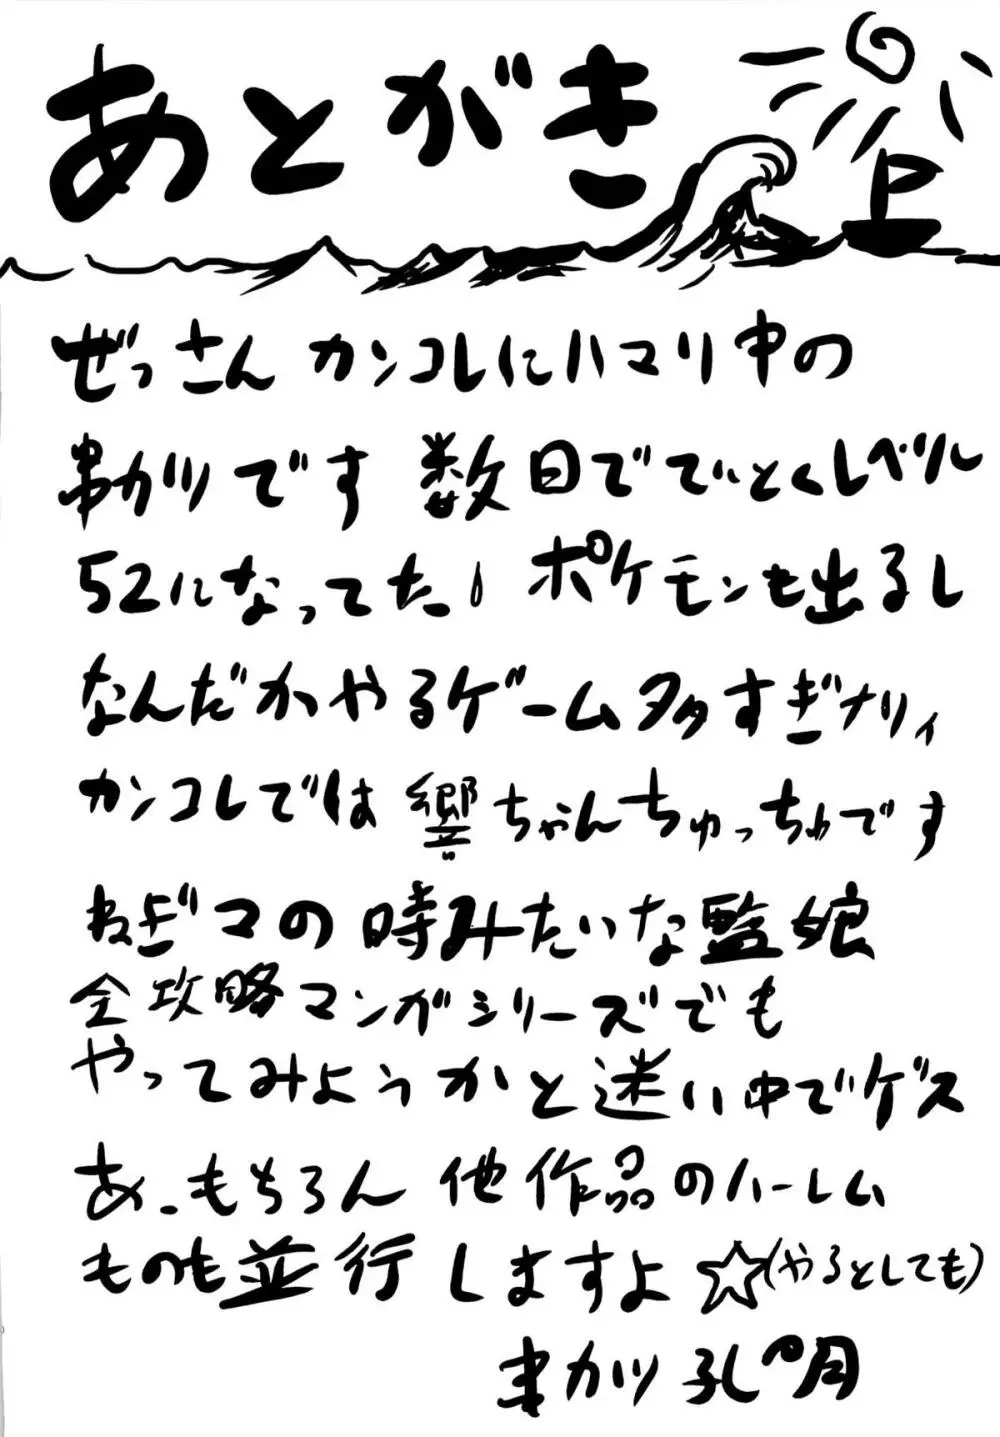 あとがき
ぜっさんカンコレにハマり中の
串カツです 数日ででいとくレベル
52になってた! ポケモンも出るし
なんだかやるゲーム多すぎナリィ
カンコレでは響ちゃんちゅっちゅです
ねぎマの時みたいな監娘
全攻略マンガシリーズでも
やってみようかと迷い中でゲス
あ、もちろん他作品のハーレム
ものも並行しますよ☆(やるとしても)
串カツ孔明